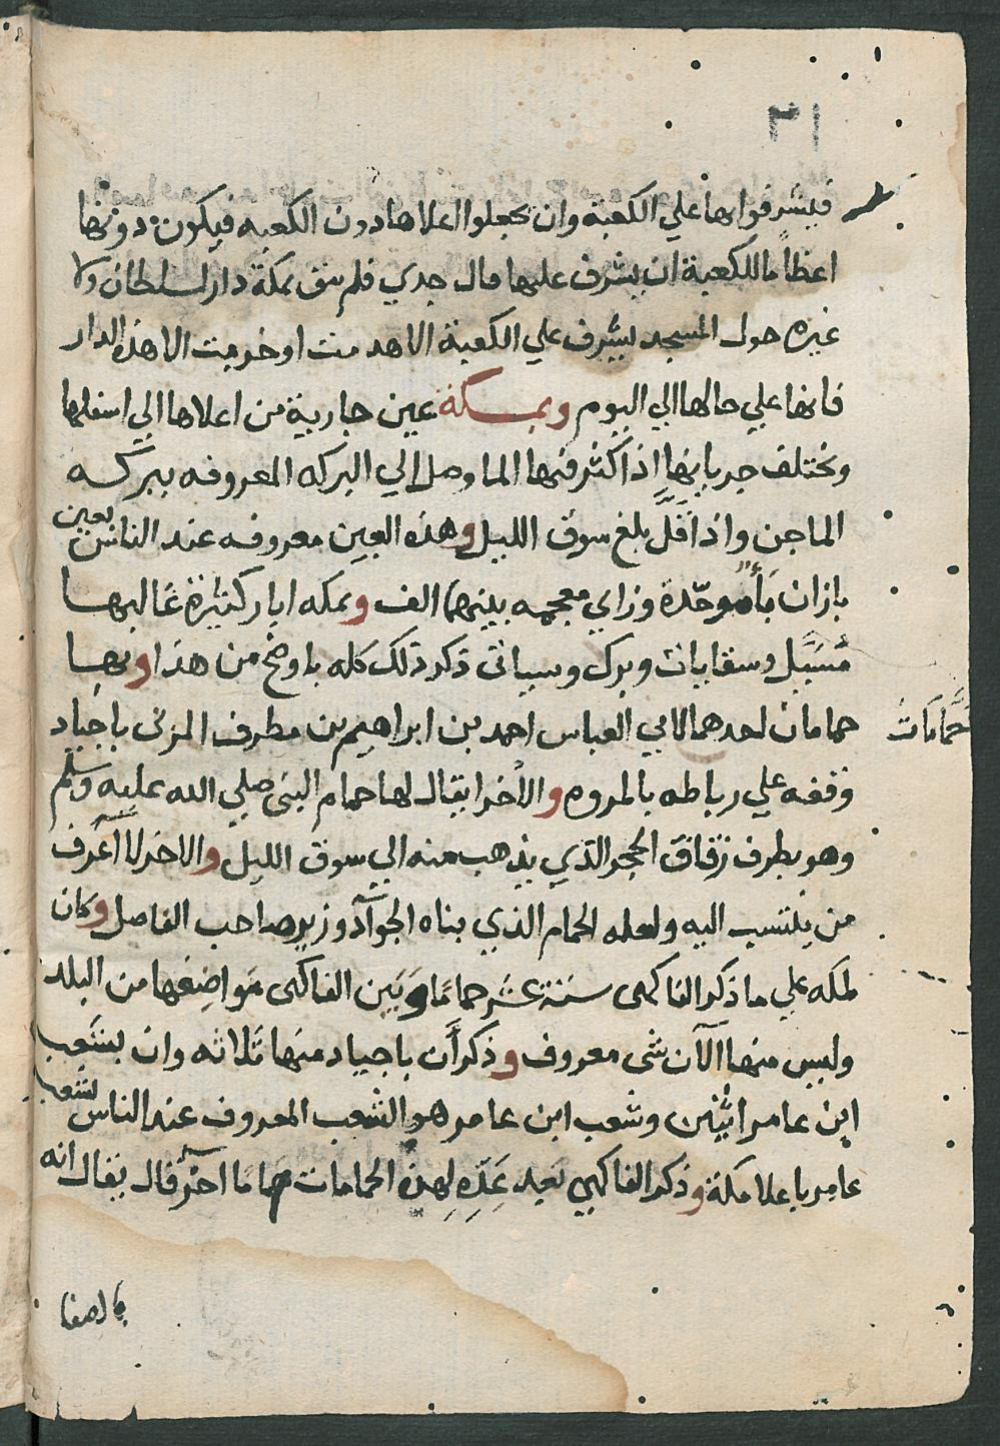 ٣١
فيشرفوا بها علي الكعبة وان يجعلوا اعلاها دون الكعبه فيكون دونها
اعظاما للكعبة ان يشرف عليها قال جدي فلم يبق بمكة دار لسلطان ولا
غيره حول المسجد يشرف علي الكعبة الا هدمت او خربت الا هذه الدار
فانها علي حالها الي اليوم وبمكة عين جارية من اعلاها الي اسفلها
وتختلف جريانها اذا كثر فيها الما وصل الي البركه المعروفه ببركه
الماجن واذا قل بلغ سوق الليل وهذه العين معروفه عند الناس بعين
بازان بأ موحّدة وزاي معجمه بينهما الف وبمكه ابار كثيرة غالبها
مُسَبَّل وسقايات وبرك وسياتي ذكر ذلك كله باوضح من هذا وبها
حمامان احدهما لابي العباس احمد بن ابراهيم بن مطرف المري باجياد
حمّامَات
وقفه علي رباطه بالمروه والأخر يقال لها حمام النبي صلي الله عليه وسلم
وهو بطرف زقاق الحجر الذي يذهب منه الي سوق الليل والاخر لا اعرف
من ينتسب اليه ولعله الحمام الذي بناه الجوآد وزير صاحب الفاصل وكان
بمكه علي ما ذكر الفاكهى ستة عشر حمامًا وبَين الفاكهى مَواضِعها من البلد
وليس منها الآن شى معروف وذكر أن باجياد منها ثلاثه وان بشعب
ابن عامر اثنين وشعب ابن عامر هو الشعب المعروف عند الناس بشعب
عامر باعلا مكة وذكر الفاكهي بعد عَدّهِ لِهذه الحمامات حماما آخر قال يقال انه
بالصفا